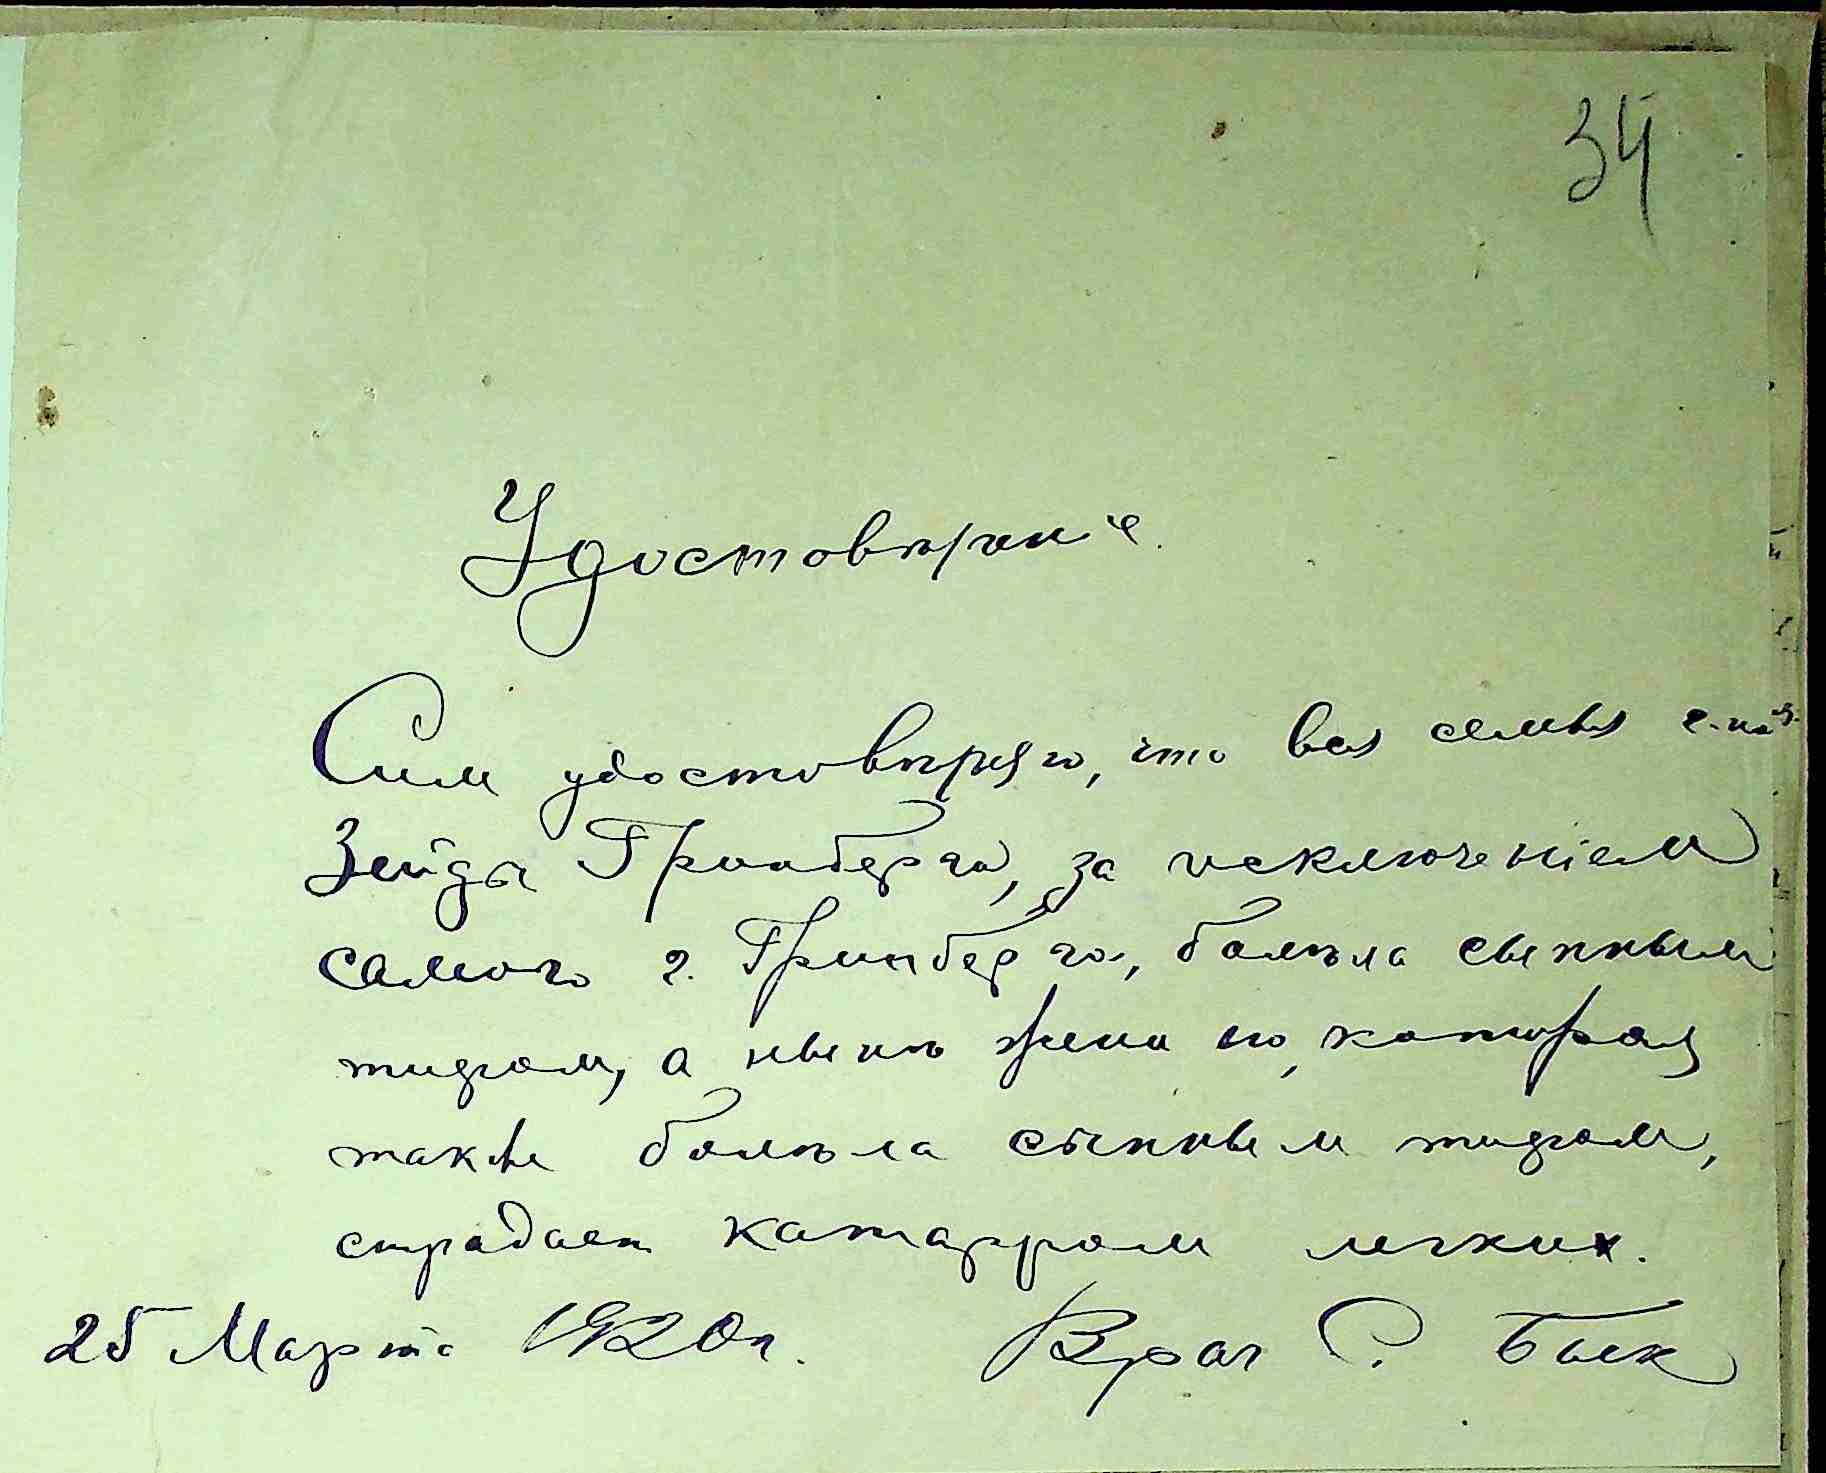 34
Удостовѣрение.
Сим удостовѣряю, что вся семья
Зейды Гринберга, за исключеніем
самого г. Гринберга, болѣла сыпным
тифом, а нынѣ жена его, которая
также болѣла сыпным тифом,
страдает катарром легких.
25 Марта 1920 г. Врач С. Бык